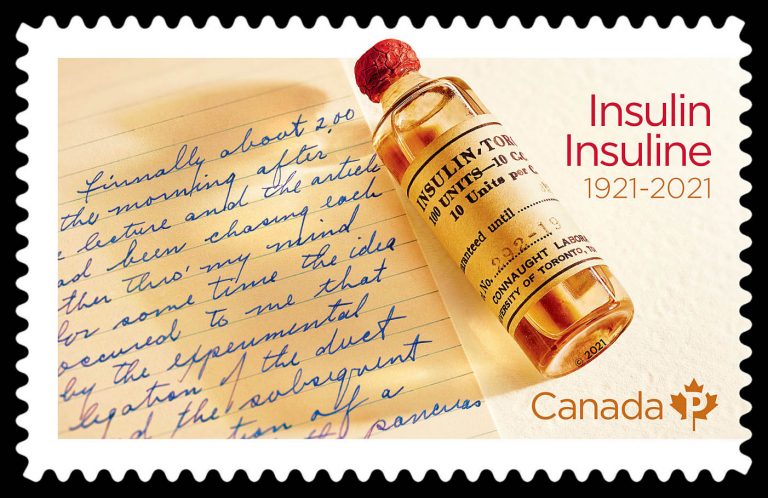 Finnally about 2,00
the morning after
lecture and the article
ad been chasing each
ther thro' my mind
for some time the idea
occured to me that
by the experimental
ligation of the duct
d the subsequent
tion of a
the pancreas
INSULIN-TOR
100 UNITS—10 C.c
10 Units per C
ranteed until
No. 292-19
CONNAUGHT LABORA
VERSITY OF TORONTO, TO
© 2021
Insulin
Insuline
1921-2021
Canada P